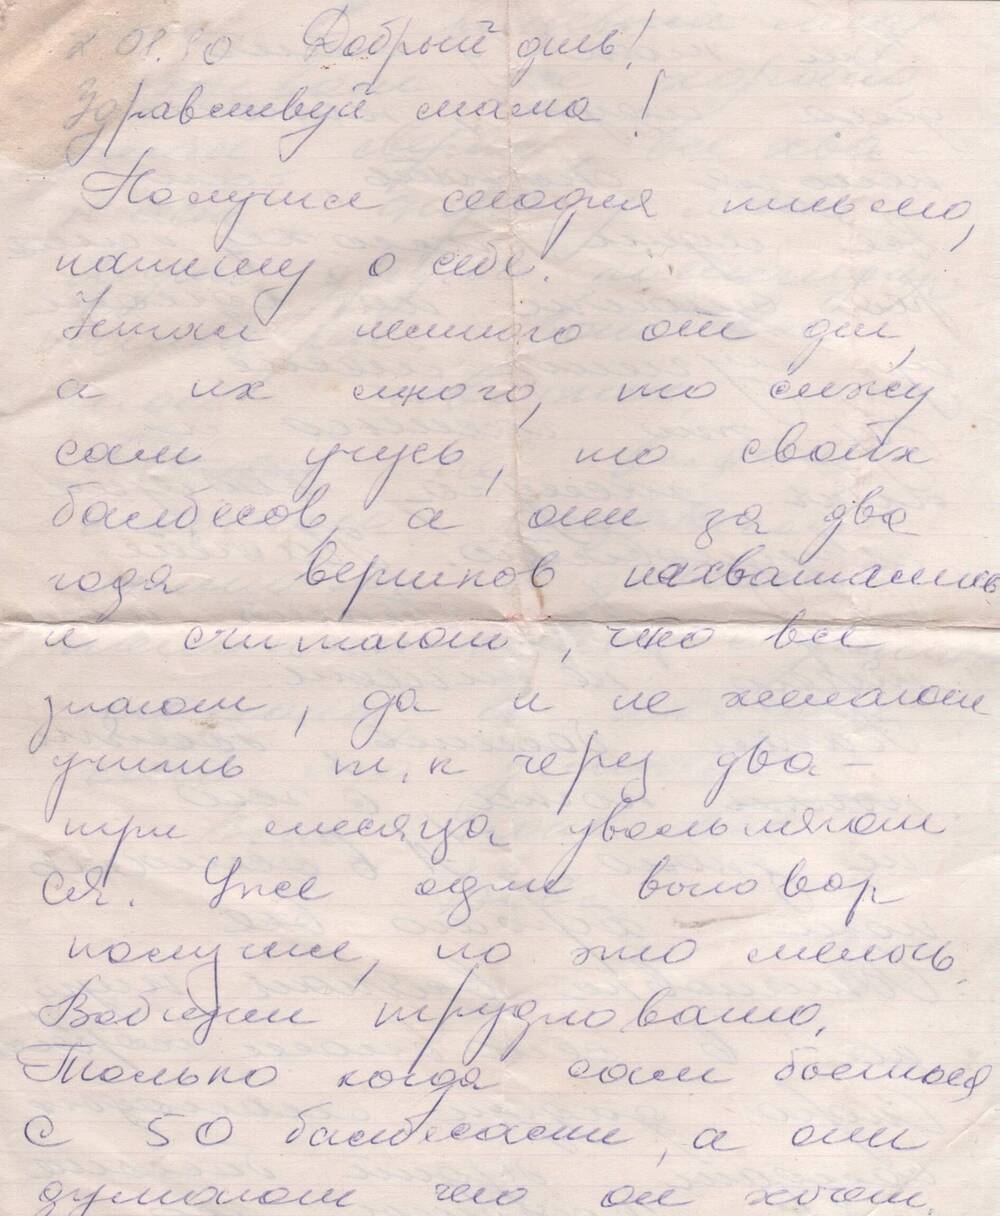 08.80 Добрый день!
Здравствуй мама!
Получил сегодня письмо,
напишу о себе.
Устал немного от дел,
а их много, то сижу
сам учусь, то своих
балбесов, а они за два
года вершков нахватались
и считают, что все
знают, да и не желают
учить т.к через два-
три месяца увольняют
ся. Уже один выговор
получил, но это мелочь.
Вобщем трудновато,
Только когда сам бьешься
с 50 балбесами, а они
думают что он хочет.